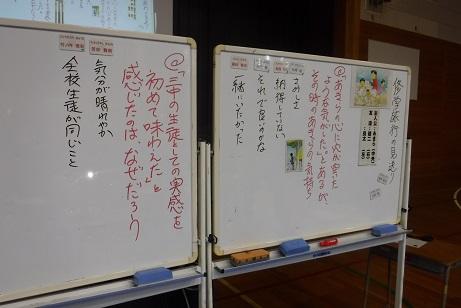 修学旅行の見送り
@あきらの心に穴が空いた
ような気がした。とあるが、
その時のあきらの気持ち
さみしさ
納得していない
それで良いのかな
一緒にいたかった
@「三中の生徒としての実感を
初めて味わえた」と
感じたのはなぜだろう
気分が晴れやか
全校生徒が同じこと